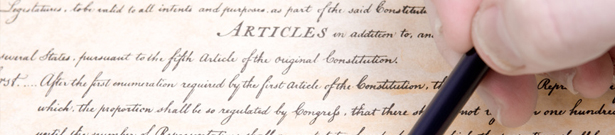 Legislatures, to be valid to all intents and purposes, as part of the said Constitut
ARTICLES in addition to, an
several States, pursuant to the fifth Article of the original Constitution.
rst.... After the first enumeration required by the first Article of the Constitution, th Repr
which, the proportion shall be so regulated by Congress, that there sh not one hundre
until the number of Representatives shall